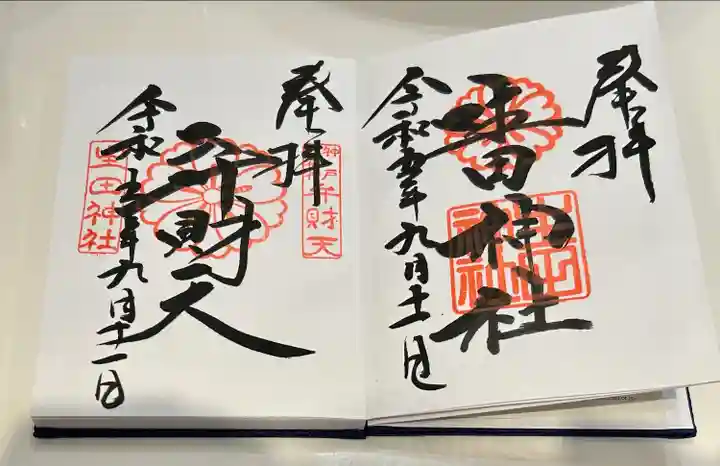 奉拝
生田神社
令和五年九月十一日
奉拝
神戸弁財天
弁財天
令和五年九月十一日
生田神社